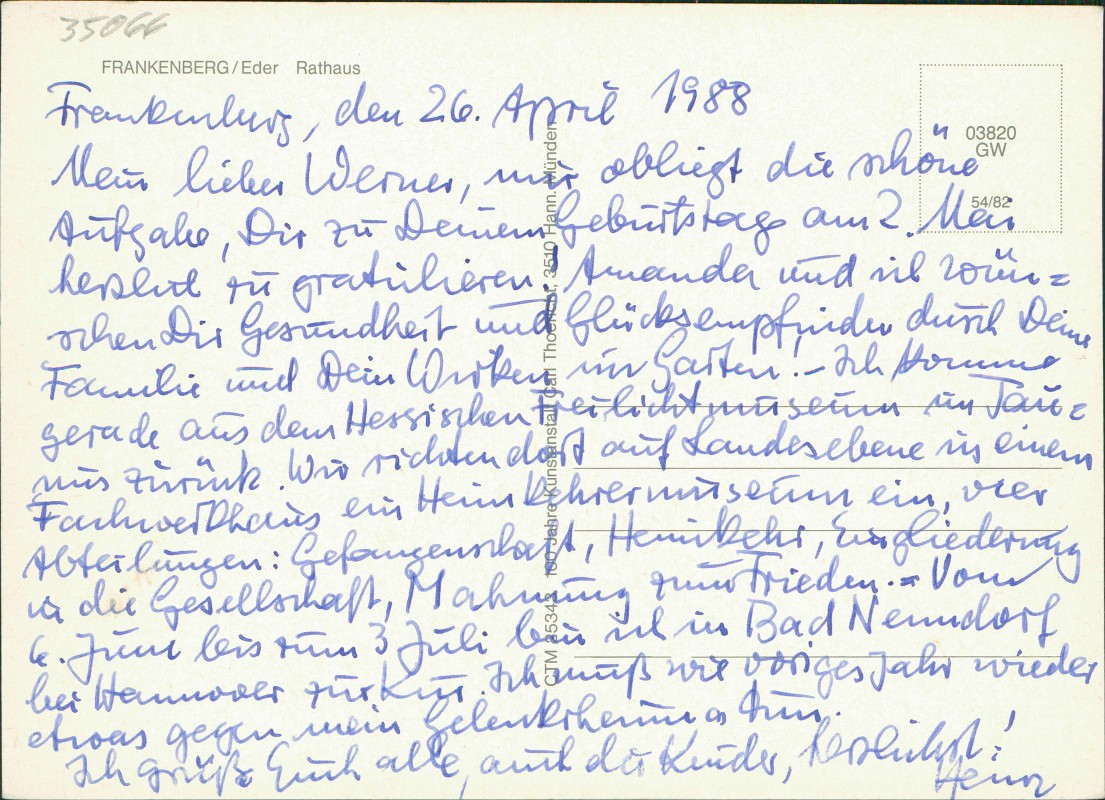 35066
FRANKENBERG/Eder Rathaus
Frankenberg, den 26. April 1988
Mein lieber Werner, mir obliegt die schöne
Aufgabe, Dir zu Deinem Geburtstage am 2. Mai
herzlich zu gratulieren! Amanda und ich wün=
schen Dir Gesundheit und Glücksempfinden durch Deine
Familie und Dein Wirken im Garten! – Ich komme
gerade aus dem Hessischen Freilichtmuseum im Tau=
nus zurück. Wir richten dort auf Landesebene in einem
Fachwerkhaus ein Heimkehrermuseum ein, vier
Abteilungen: Gefangenschaft, Heimkehr, Eingliederung
in die Gesellschaft, Mahnung zum Frieden. – Vom
6. Juni bis zum 3 Juli bin ich in Bad Nenndorf
bei Hannover zur Kur. Ich muß wie voriges Jahr wieder
etwas gegen mein Gelenkrheuma tun.
Ich grüße Euch alle, auch die Kinder, herzlichst!
03820
GW
54/82
100 Jahre Kunstanstalt Carl Thoericht, 3510 Hann. Münden